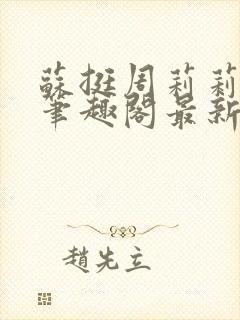 蘇挺周莉莉
筆趣閣最新
趙先立